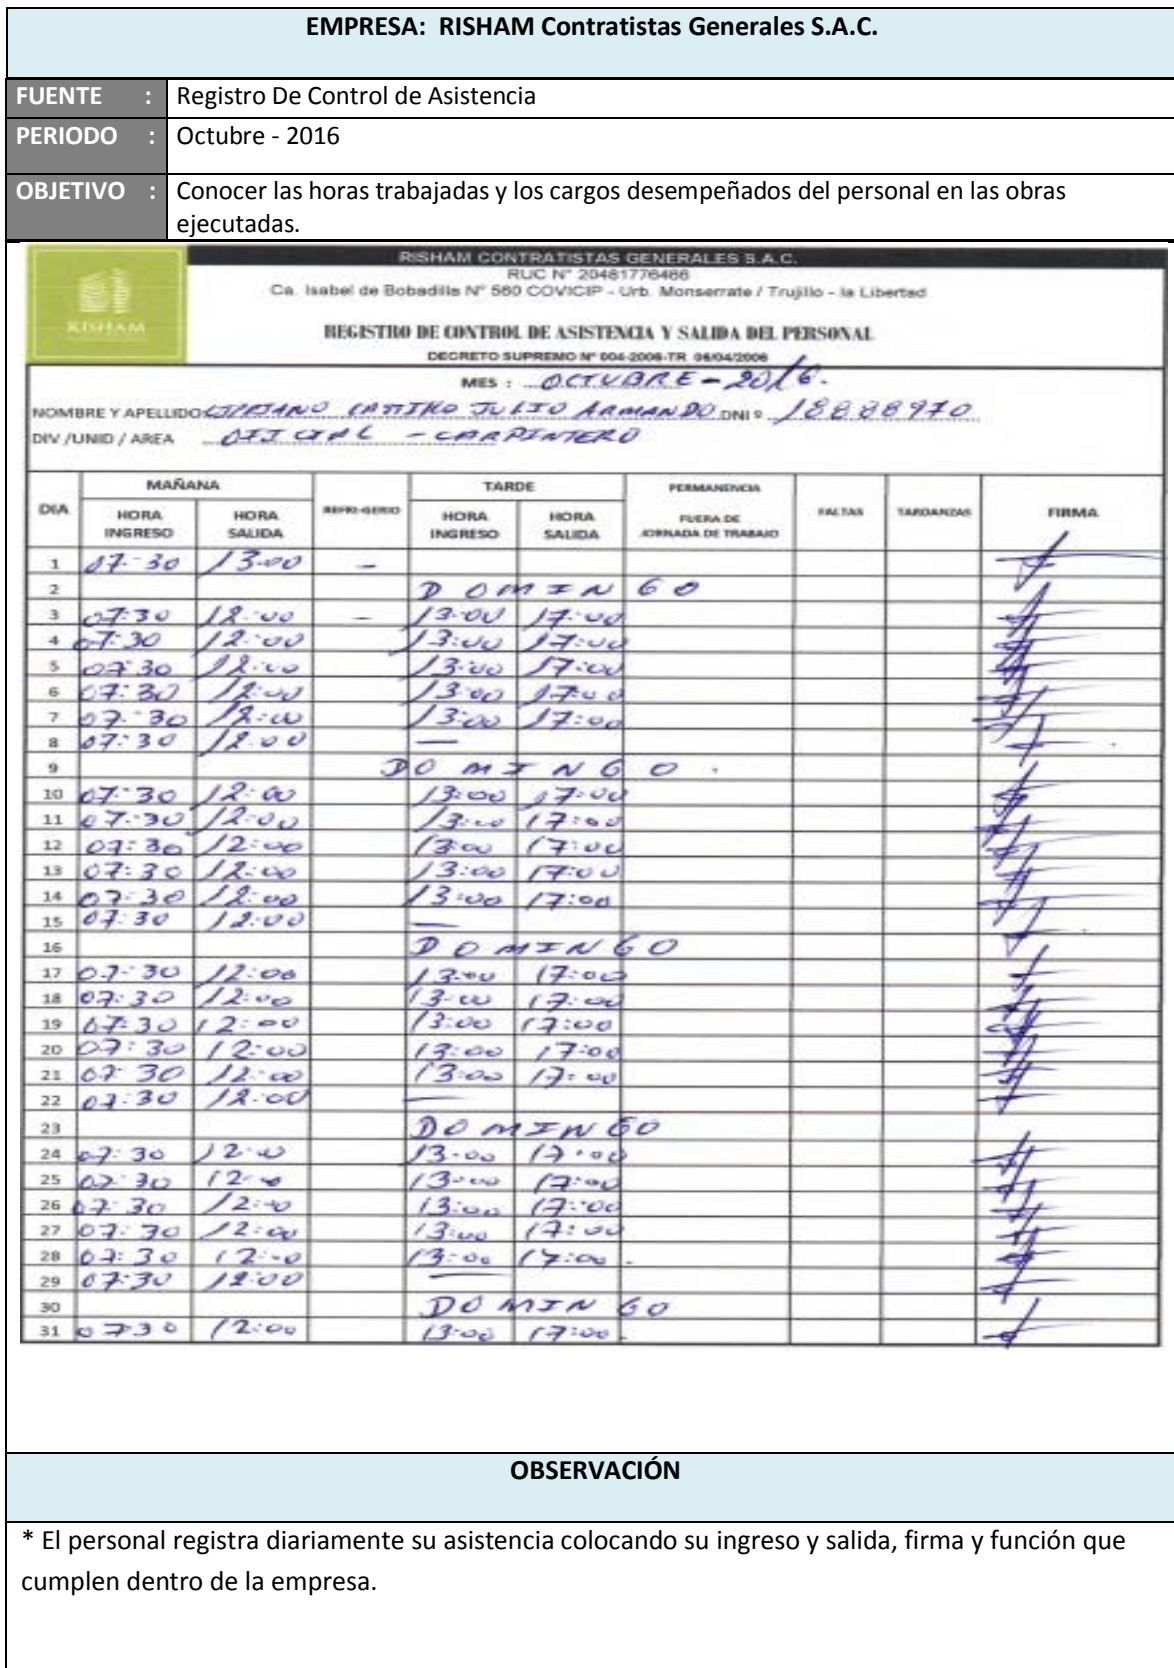 EMPRESA: RISHAM Contratistas Generales S.A.C.
FUENTE : Registro De Control de Asistencia
PERIODO : Octubre - 2016
OBJETIVO : Conocer las horas trabajadas y los cargos desempeñados del personal en las obras
ejecutadas.
RISHAM CONTRATISTAS GENERALES S.A.C.
RUC N° 20481776466
Ca. Isabel de Bobadilla N° 560 COVICIP - Urb. Monserrate / Trujillo - la Libertad
RISHAM
REGISTRO DE CONTROL DE ASISTENCIA Y SALIDA DEL PERSONAL
DECRETO SUPREMO N° 004-2006-TR 06/04/2006
MES : OCTUBRE - 2016.
NOMBRE Y APELLIDO JULIO ARMANDO DNI º 18888970
DIV /UNID / AREA OFICIAL - CARPINTERO
DIA MAÑANA REFRI-GERIO TARDE PERMANENCIA FUERA DE JORNADA DE TRABAJO FALTAS TARDANZAS FIRMA
HORA INGRESO HORA SALIDA HORA INGRESO HORA SALIDA
1 07:30 13:00 -
2 DOMINGO
3 07:30 12:00 - 13:00 17:00
4 07:30 12:00 13:00 17:00
5 07:30 12:00 13:00 17:00
6 07:30 12:00 13:00 17:00
7 07:30 12:00 13:00 17:00
8 07:30 12:00 —
9 DOMINGO .
10 07:30 12:00 13:00 17:00
11 07:30 12:00 13:00 17:00
12 07:30 12:00 13:00 17:00
13 07:30 12:00 13:00 17:00
14 07:30 12:00 13:00 17:00
15 07:30 12:00 —
16 DOMINGO
17 07:30 12:00 13:00 17:00
18 07:30 12:00 13:00 17:00
19 07:30 12:00 13:00 17:00
20 07:30 12:00 13:00 17:00
21 07:30 12:00 13:00 17:00
22 07:30 12:00 —
23 DOMINGO
24 07:30 12:00 13:00 17:00
25 07:30 12:00 13:00 17:00
26 07:30 12:00 13:00 17:00
27 07:30 12:00 13:00 17:00
28 07:30 12:00 13:00 17:00 .
29 07:30 12:00 —
30 DOMINGO
31 0730 12:00 13:00 17:00.
OBSERVACIÓN
* El personal registra diariamente su asistencia colocando su ingreso y salida, firma y función que
cumplen dentro de la empresa.